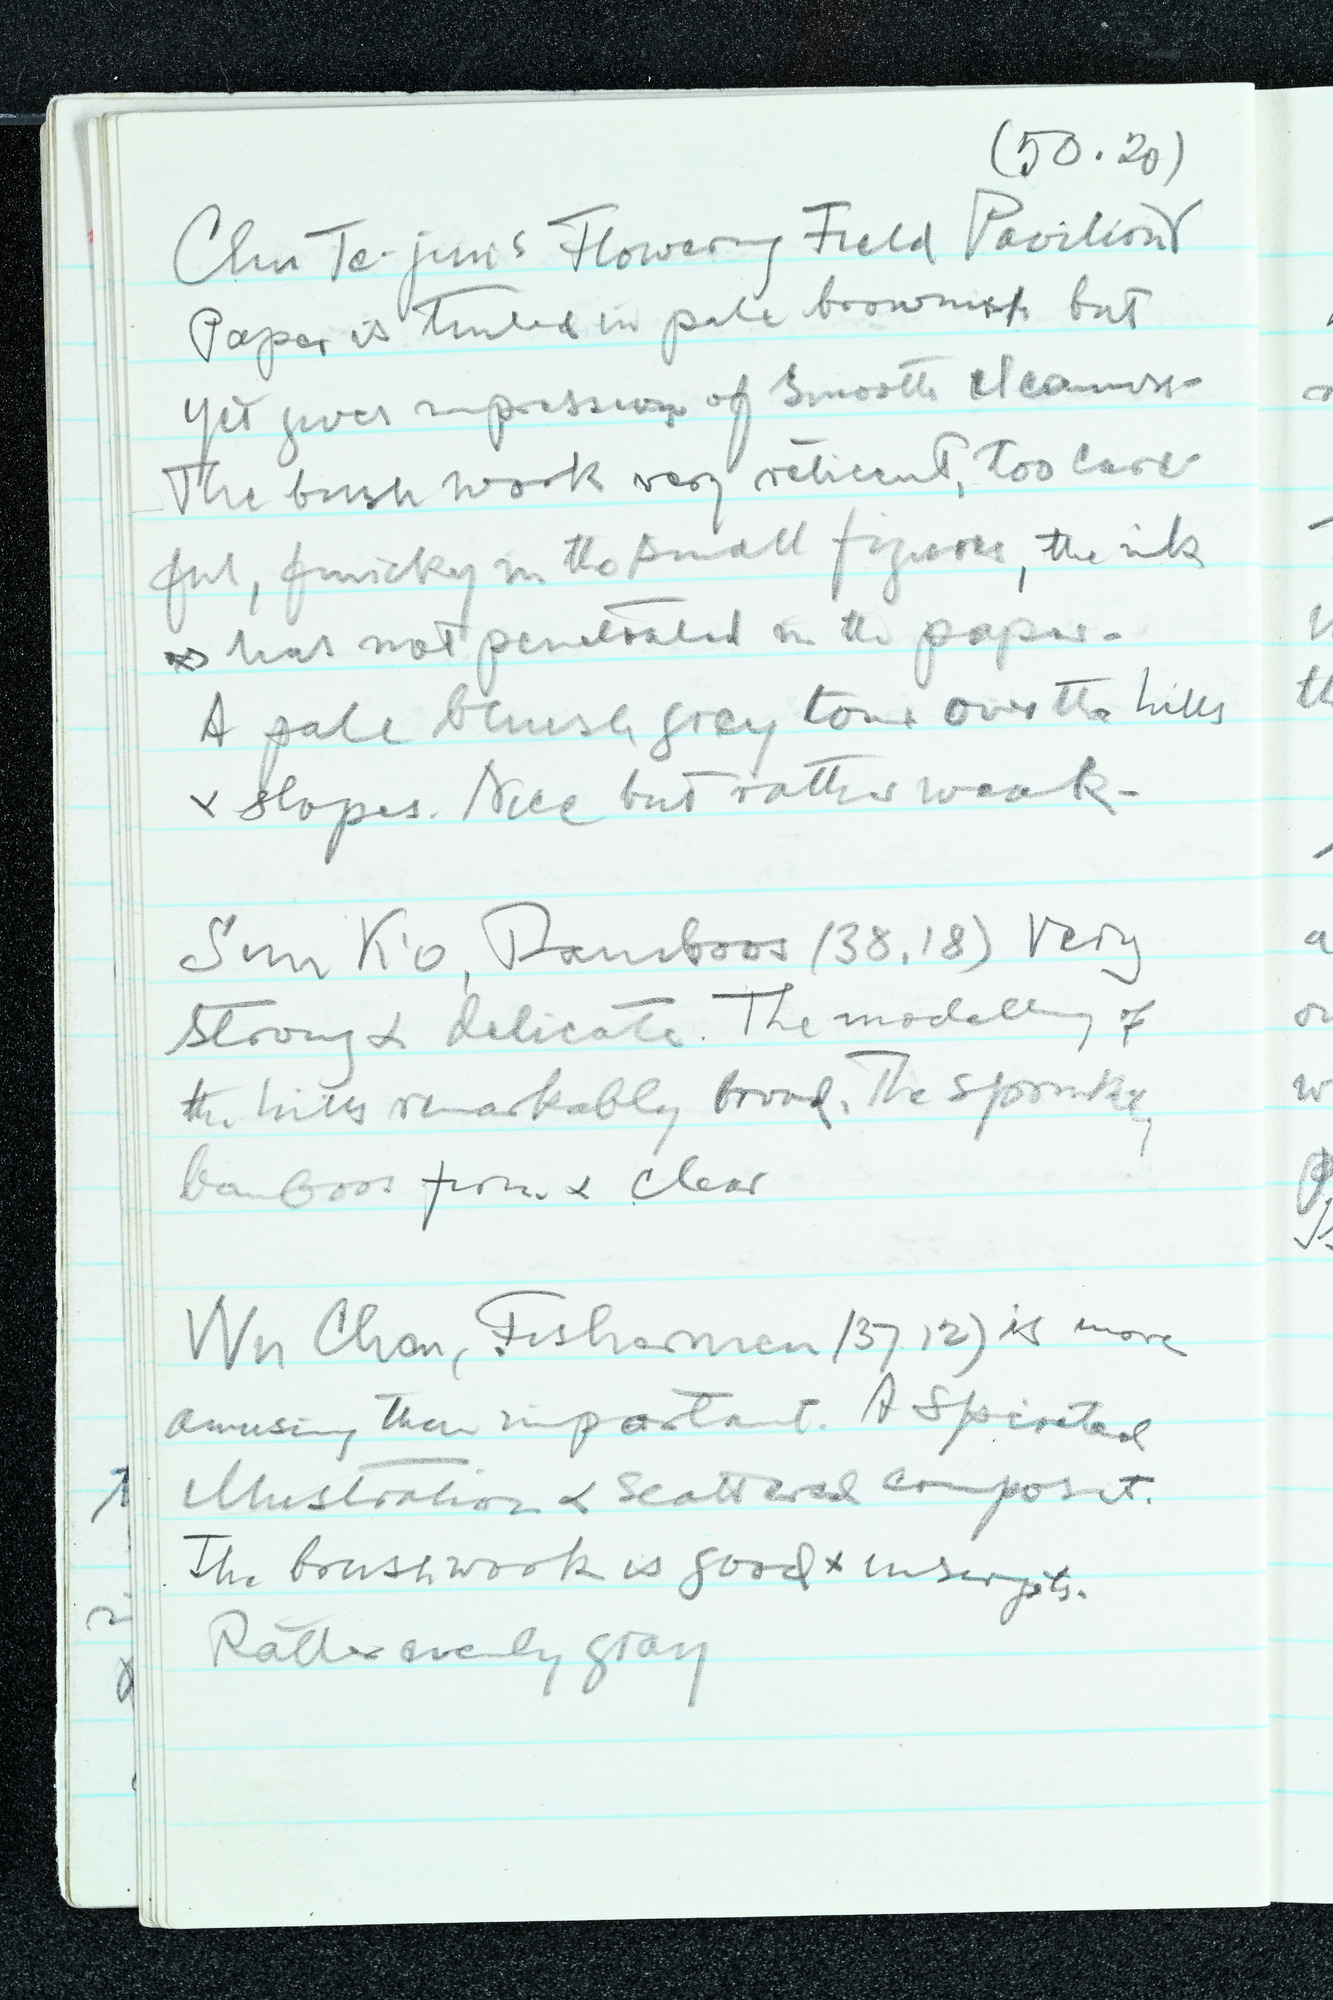 (50.20)
Chu Te-jun's Flowering Field Pavilion
Paper is tinted in pale brownish but
yet gives impression of smooth cleanness-
The brush work very reticent, too care-
ful, finicky in the small figures, the ink
has not penetrated in the paper-
A pale blueish grey tone over the hills
& slopes. Nice but rather weak-
Sun K'o, Bamboos (38.18) Very
Strong & delicate. The modelling of
the hills remarkably broad. The
bamboos firm & clear
Wu Chen, Fisherman (37.12) is more
amusing than important. A Spirited
illustration & scattered composit.
The brushwork is good &
Rather evenly gray